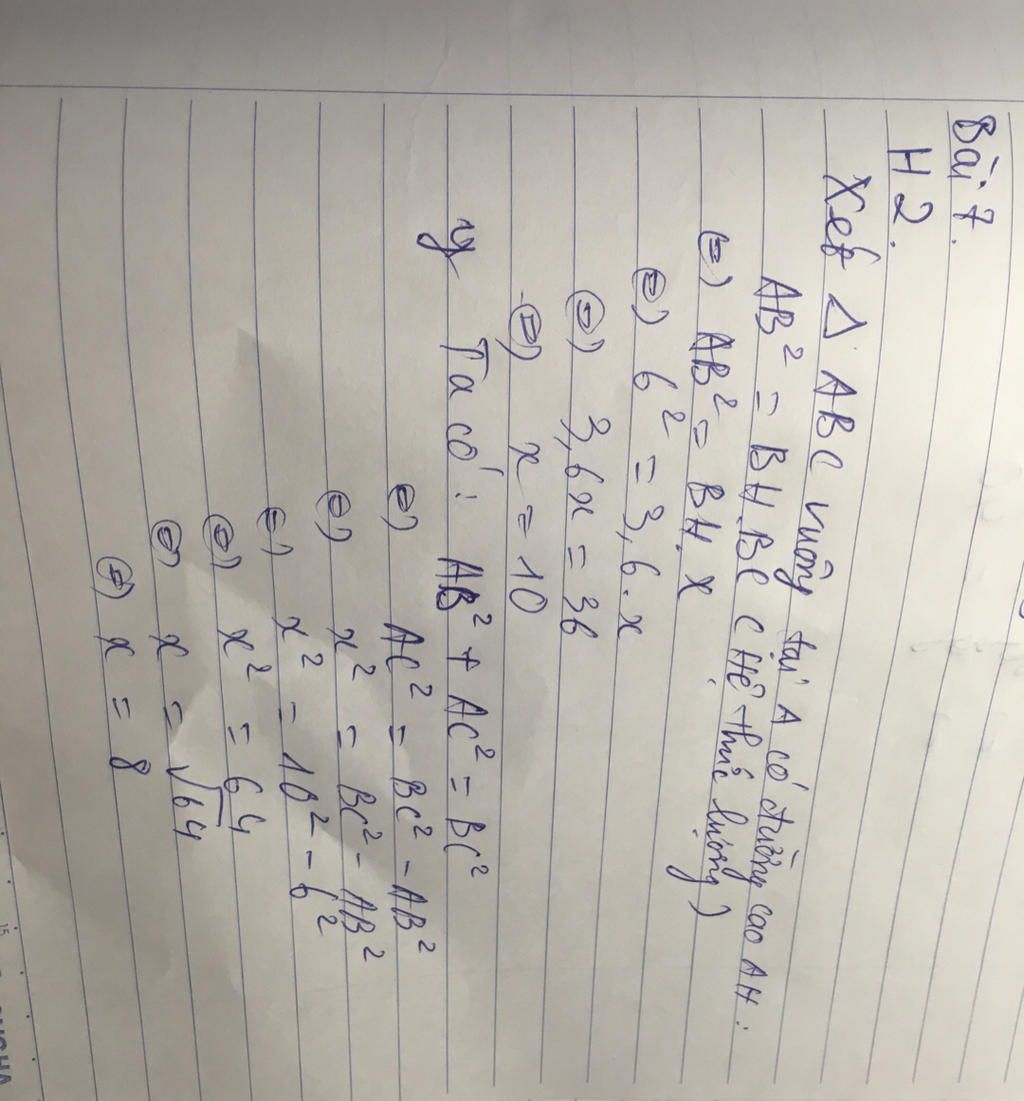 Bài 7.
H2.
Xét Δ ABC vuông tại A có đường cao AH:
AB² = BH.BC (Hệ thức lượng)
⇔) AB² = BH.x
⇔) 6² = 3,6.x
⇔) 3,6x = 36
⇔) x = 10
y Ta có: AB² + AC² = BC²
⇔) AC² = BC² - AB²
⇔) x² = BC² - AB²
⇔) x² = 10² - 6²
⇔) x² = 64
⇔) x = √64
⇔) x = 8
15